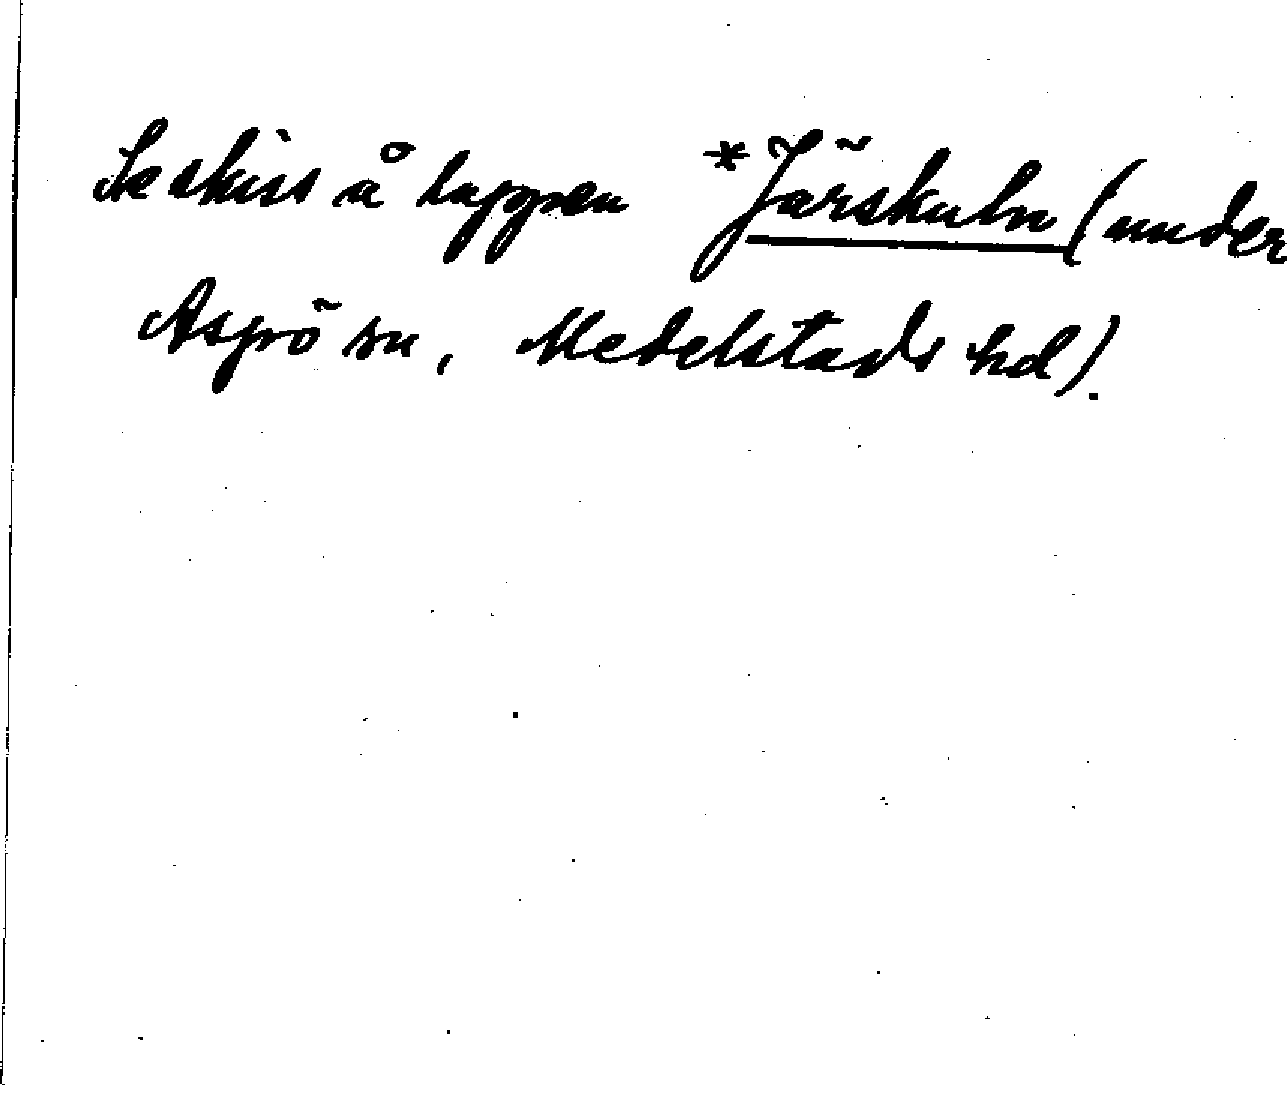 Se skiss å lappen *Järskuln (under
Aspö sn, Medelstads hd).